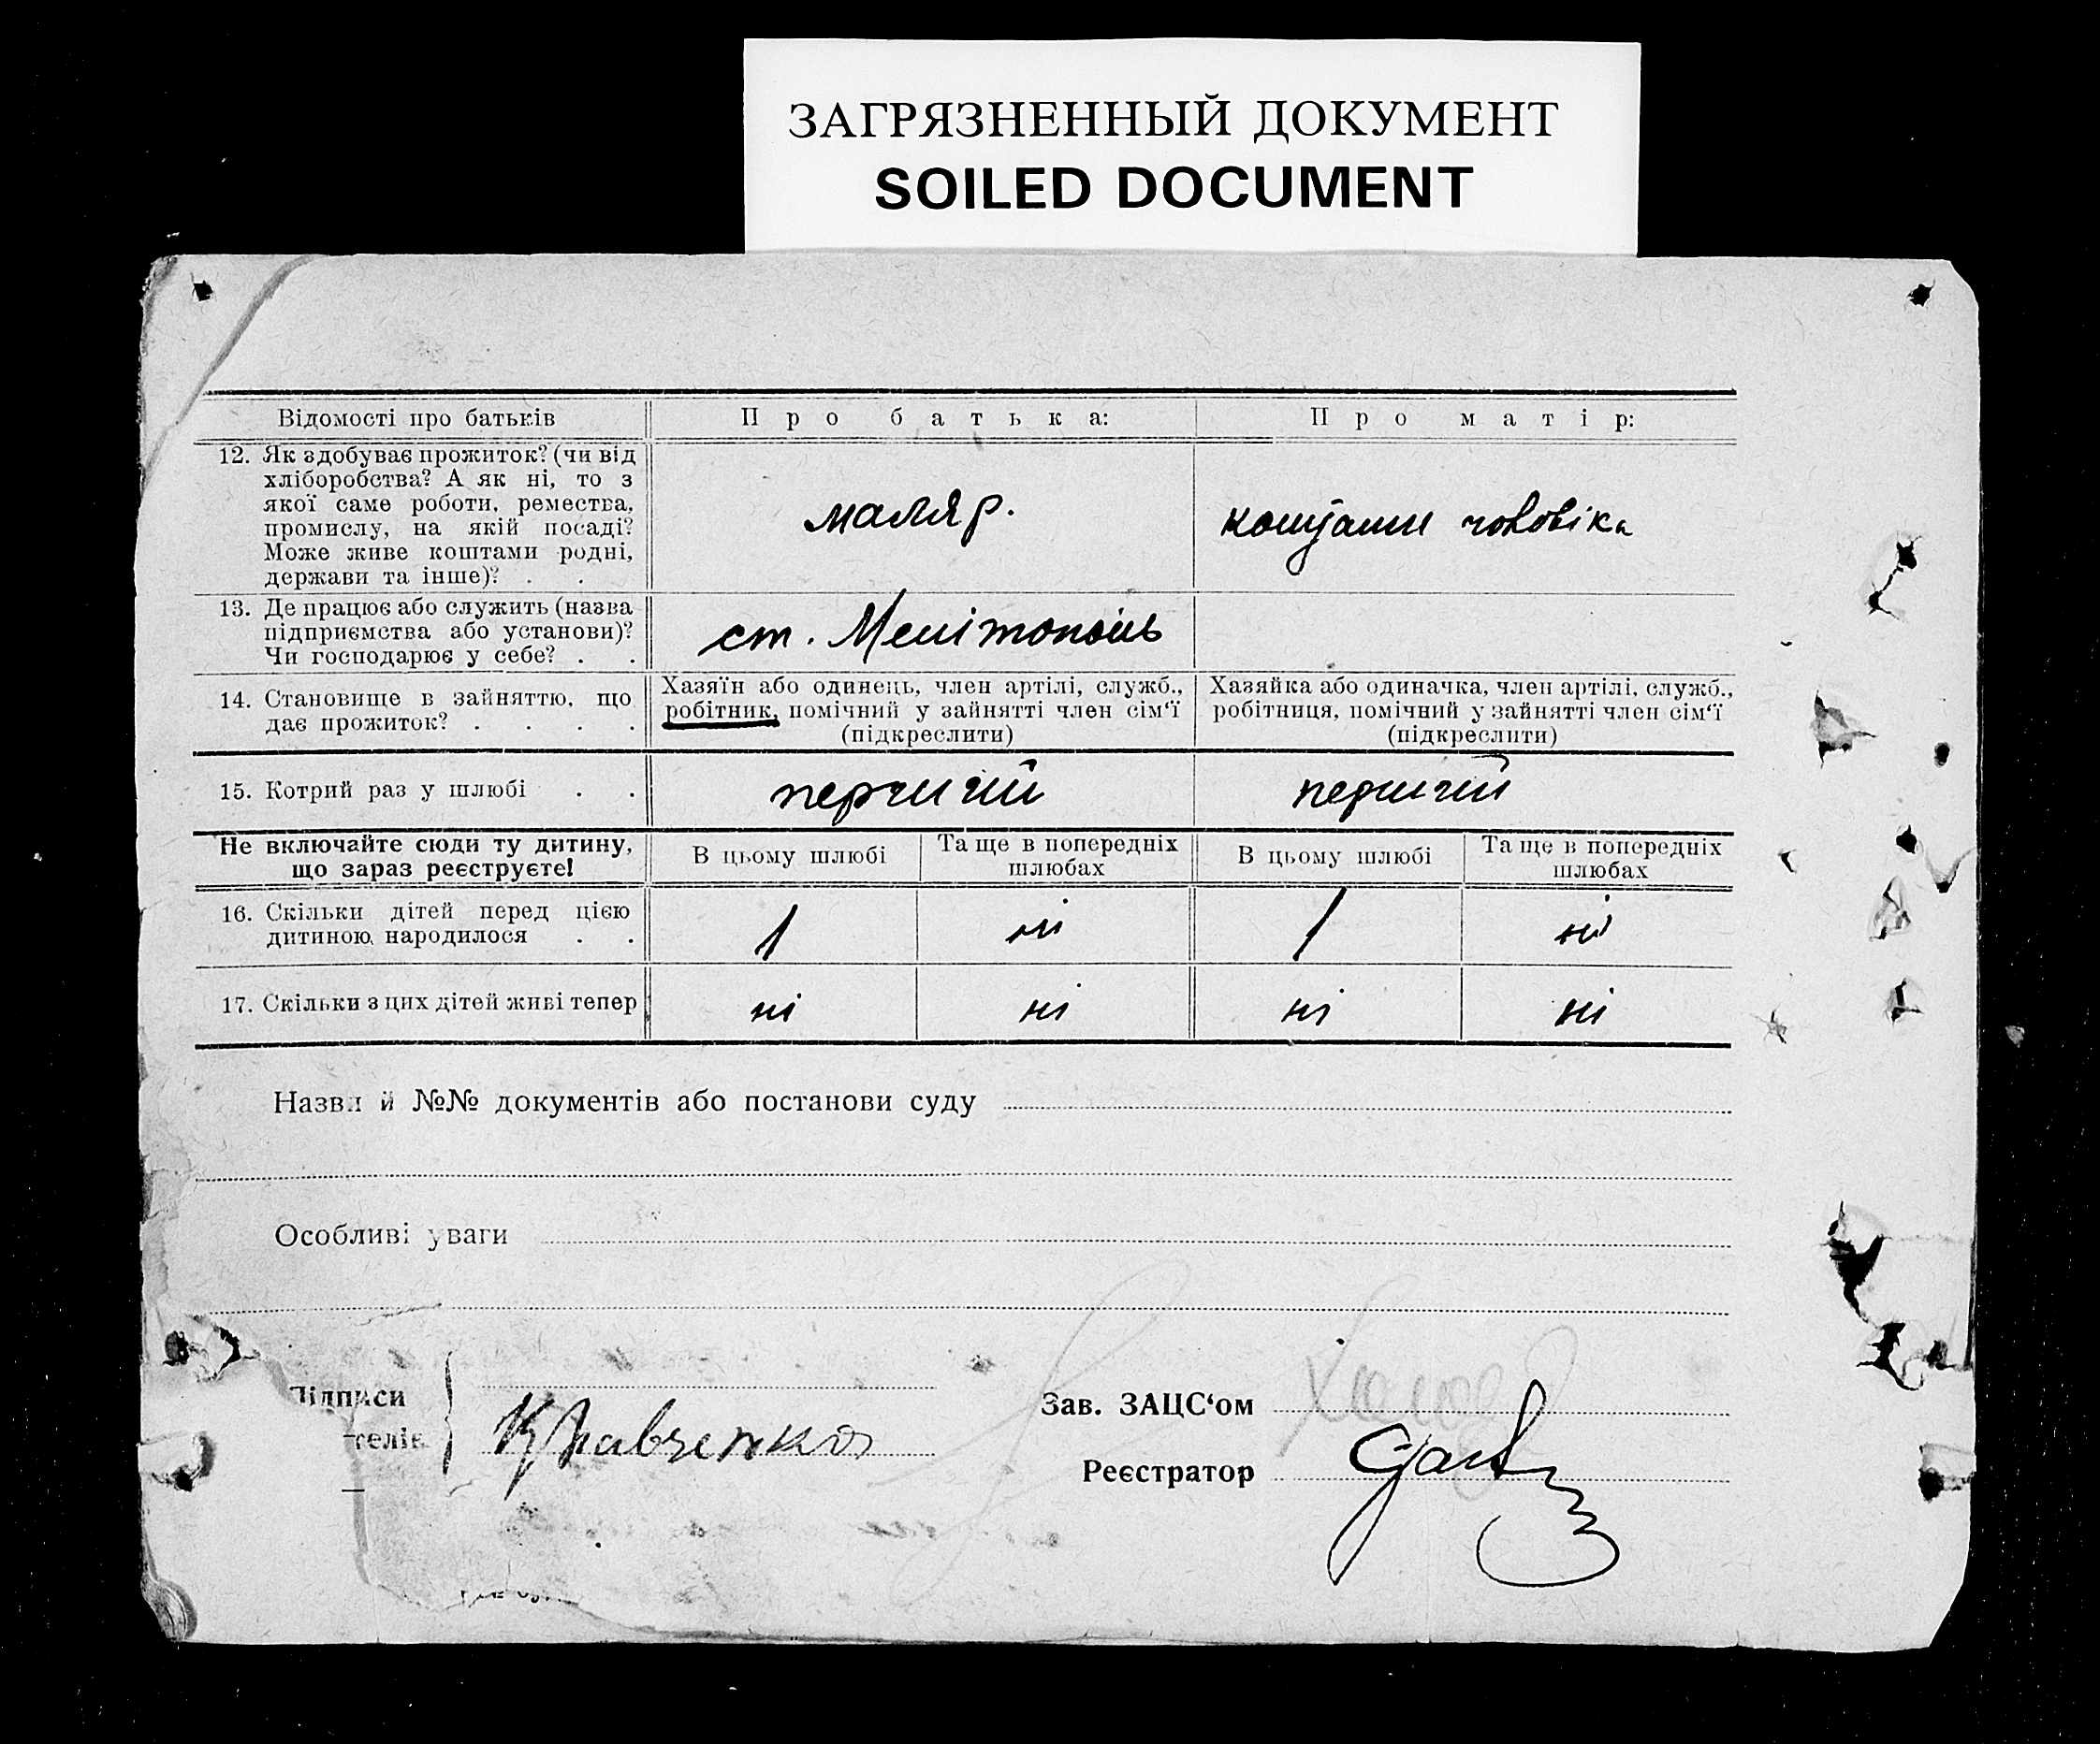 ЗАГРЯЗНЕННЫЙ ДОКУМЕНТ
SOILED DOCUMENT
Відомості про батьків
Про батька:
Про матір:
12. Як здобуває прожиток? (чи від
хліборобства? А як ні, то з
якої саме роботи, ремества,
промислу, на якій посаді?
Може живе коштами родні,
держави та інше)? . .
маляр.
коштами чоловіка
13. Де працює або служить (назва
підприємства або установи)?
Чи господарює у себе? . .
ст. Мелітополь
14. Становище в зайняттю, що
дає прожиток? . . . .
Хазяїн або одинець, член артілі, служб.,
робітник, помічний у зайнятті член сім‘ї
(підкреслити)
Хазяйка або одиначка, член артілі, служб.,
робітниця, помічний у зайнятті член сім‘ї
(підкреслити)
15. Котрий раз у шлюбі . .
перший
перший
Не включайте сюди ту дитину,
що зараз реєструєте!
В цьому шлюбі
Та ще в попередніх
шлюбах
В цьому шлюбі
Та ще в попередніх
шлюбах
16. Скільки дітей перед цією
дитиною, народилося . .
1
ні
1
ні
17. Скільки з цих дітей живі тепер
ні
ні
ні
ні
Назва й №№ документів або постанови суду
Особливі уваги
Підписи
Кравченко
Зав. ЗАЦС‘ом
Реєстратор